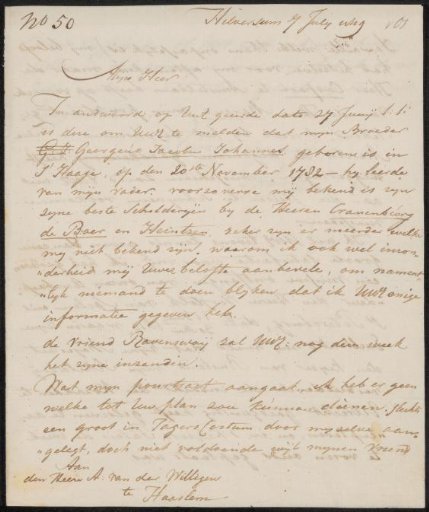 No 50
Hilversum 7 July
Myne Heer
In andwoord op Uwt geerde date 27 Juny l.l.
is deze om UwE te melden dat mijn Broeder
Georgius Jacobus Johannes geboren is in
S' Haage, op den 20ste November 1782 – hy leerde
van mijn vader. voorzoverre my bekend is zyn
zyne beste Schilderyen by de Heeren Cranenburg
de Boer en Heintzen zeker zyn er meerder welke
my niet bekend zyn. waarom ik ook wel
mij Uwe belofte aanbevele, om nament
lijk niemand te doen blyken dat ik UwE enige
informatie gegeven heb.
de Vriend Ravenswaij zal UwE: nog deze week
het zyne inzenden.
Wat mijn pourtrait aangaat, ik heb er geen
welke tot Uw plan zou kunnen dienen, slechts
een groot in Jagers Costum door my zelve aan
gelegt, doch niet voldoende wyl mynen Vriend
Aan
den Heere A. van der Willigen
te Haarlem